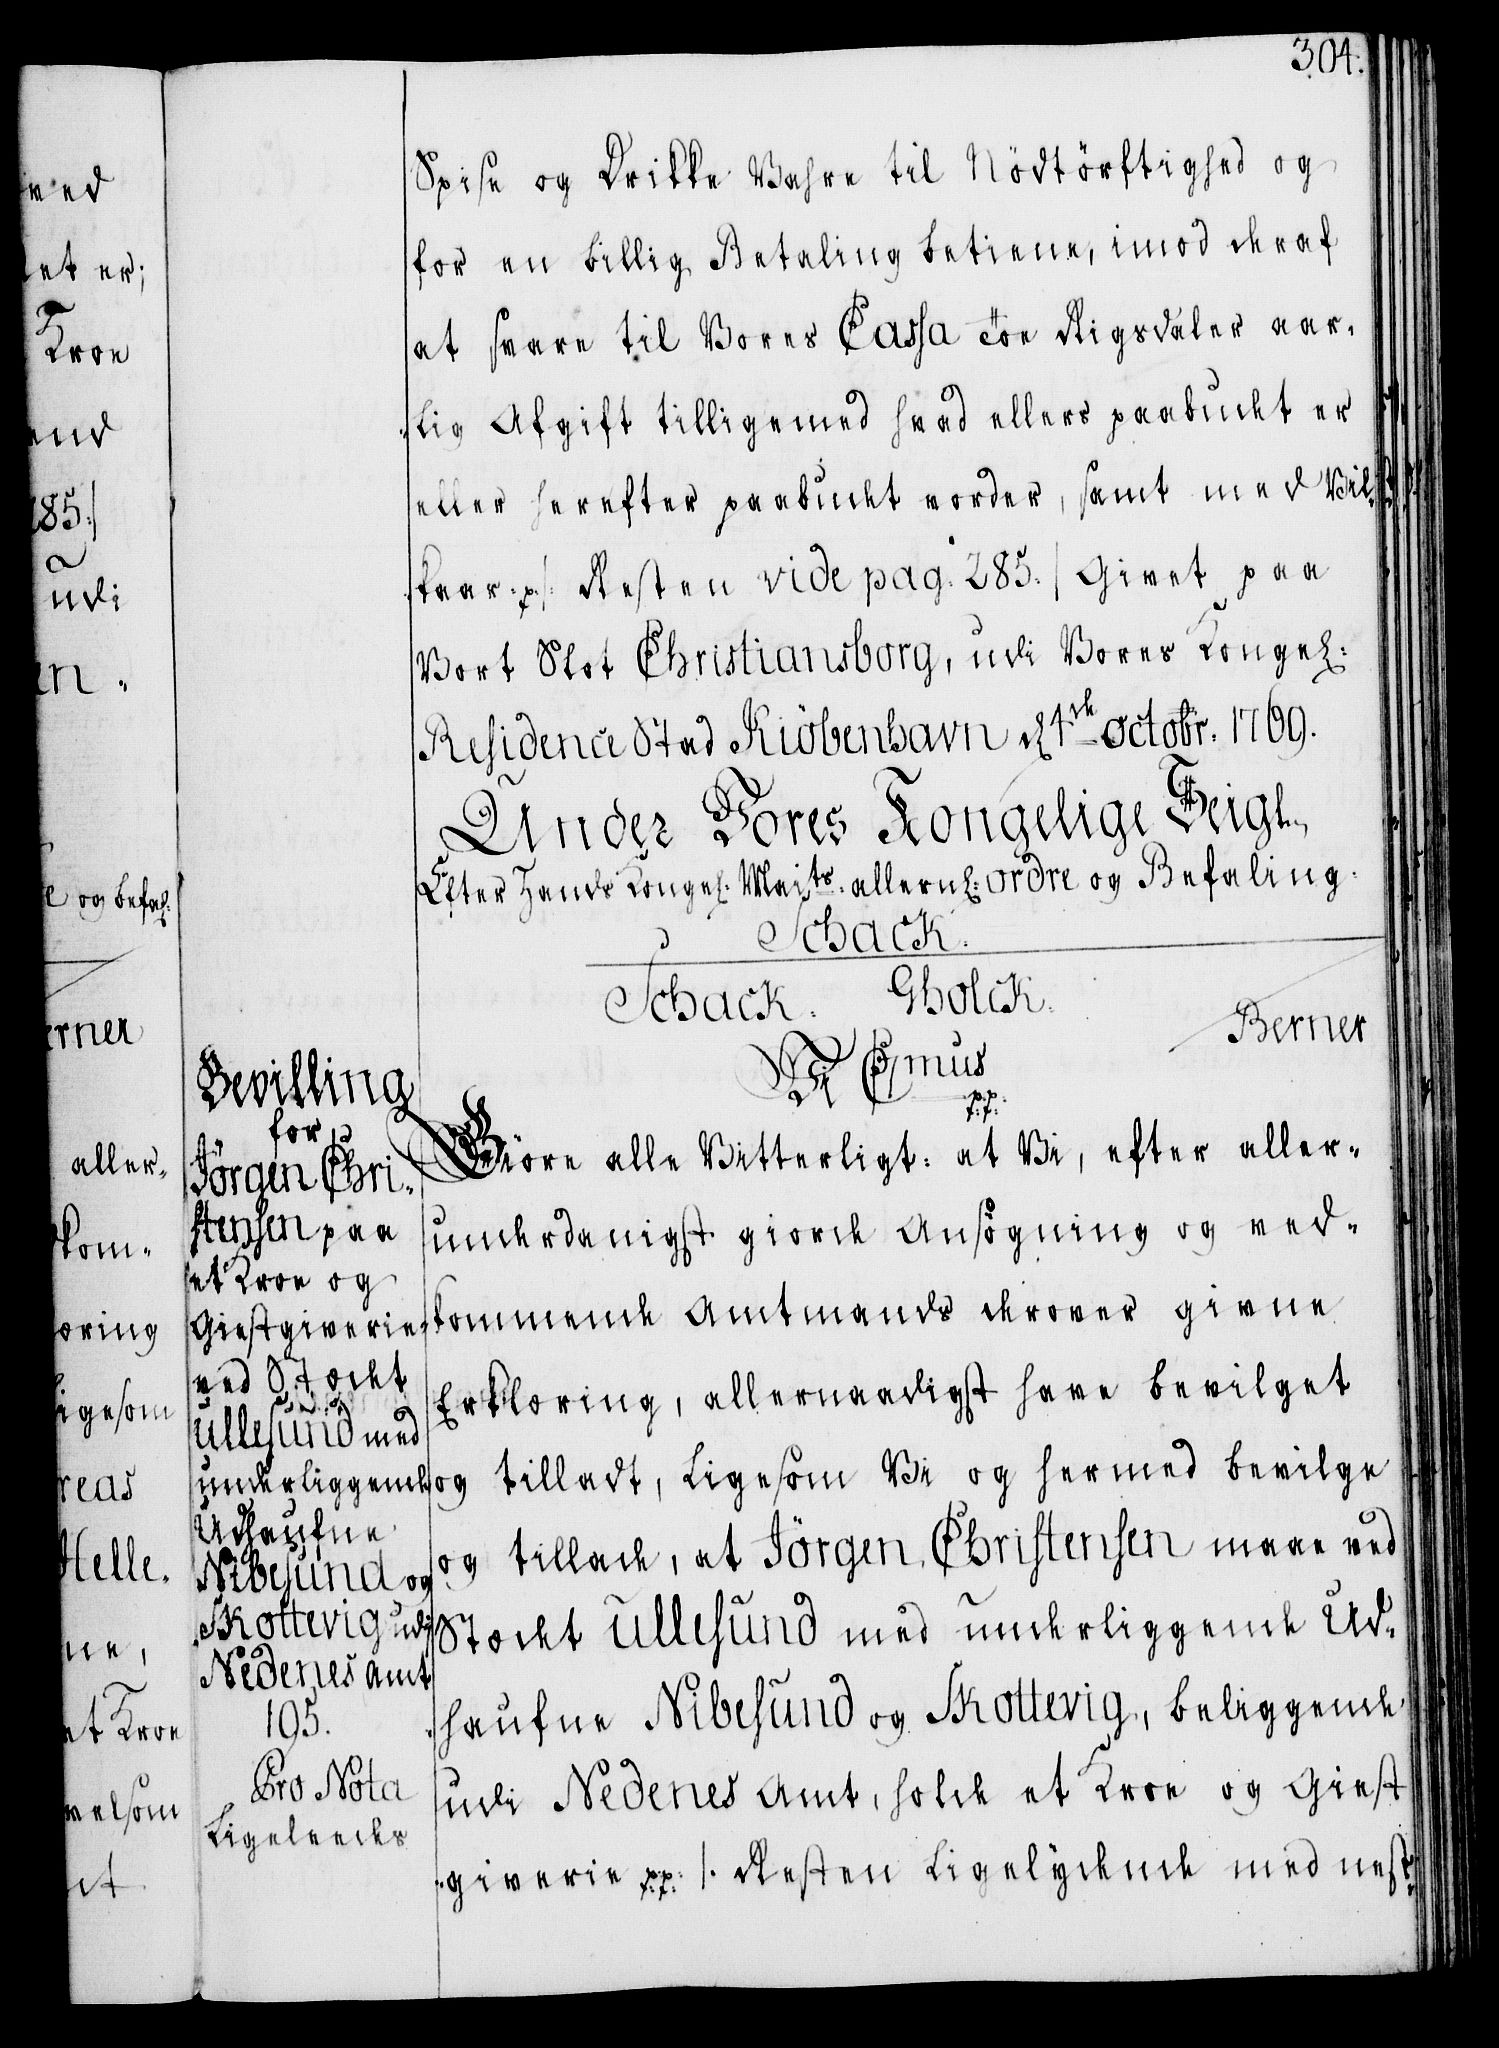 304.
Spise og Drikke Vahre til Nödtörftighed og
for en billig Betaling betiene, imod deraf
at svare til Vores Cassa Toe Rigsdaler aar-
lig Afgift tilligemed hvad ellers paabudet er
eller herefter paabudet vorder, samt med Vil-
kaar p. /: Resten vide pag. 285. / Givet paa
Vort Slot Christiansborg, udi Vores Kongel:
Residence Stad Kiöbenhavn d 4de Octobr: 1769.
Under Vores Kongelige Seigl.
Efter Hands Kongel. Maits. allernd: ordre og Befaling.
Schack.
Schack. Gholck.
Berner
Vi C7mus
p.p:
Bevilling
for
Jörgen Chri-
stensen paa
et Kroe og
Giestgiverie
ved Stædet
Ullesund med
underliggende
Udhaufne
Nibesund og
Skottevig udi
Nedenes Amt
195.
Pro Nota
Ligeleedes
Giöre alle Vitterligt: at Vi, efter aller-
underdanigst giorde Ansögning og ved-
kommende Amtmands derover givne
Erklæring, allernaadigst have bevilget
og tilladt, Ligesom Vi og hermed bevilge
og tillade, at Jörgen Christensen maae ved
Stædet Ullesund med underliggende Ud-
haufne Nibesund og Skottevig, beliggende
udi Nedenes Amt, holde et Kroe og Giest
giverie p.p: /. Resten Ligelydende med nest
ved
et er;
Kroe
end
285./
udi
en.
e og befal:
erner
aller-
kom-
æring
igesom
reas
Helle-
ne,
et Kroe
velsom
et